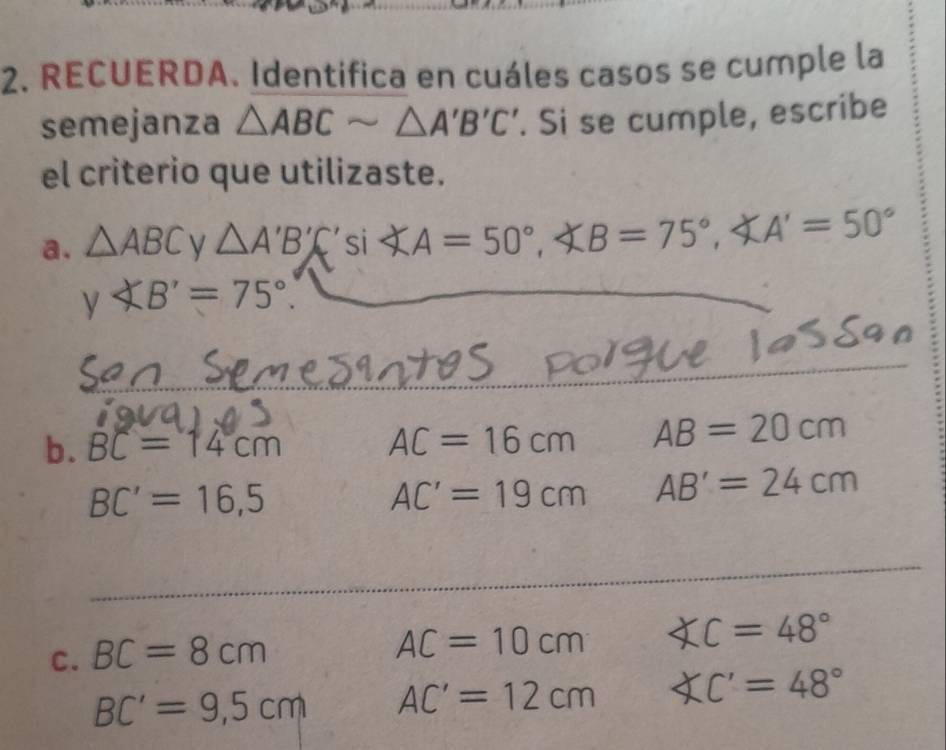 2. RECUERDA. Identifica en cuáles casos se cumple la
semejanza △ABC ~ △A'B'C'. Si se cumple, escribe
el criterio que utilizaste.
a. △ABC y △A'B'C' si ∡A = 50°, ∡B = 75°, ∡A' = 50°
y ∡B' = 75°.
San semesantes porque las san
iguales
b. BC = 14 cm AC = 16 cm AB = 20 cm
BC' = 16,5 AC' = 19 cm AB' = 24 cm
c. BC = 8 cm AC = 10 cm ∡C = 48°
BC' = 9,5 cm AC' = 12 cm ∡C' = 48°